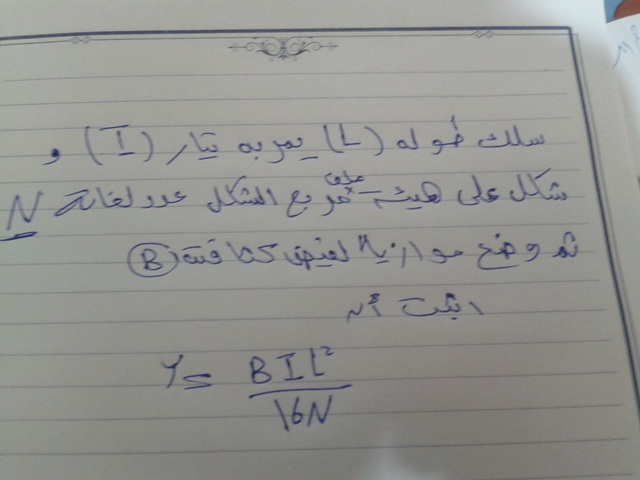 سلك طوله (L) يمر به تيار (I) و
شكل على هيئة ملف مربع الشكل عدد لفاته N
ثم وضع موازيا لفيض كثافته (B)
اثبت أن
τ = BIL²/16N